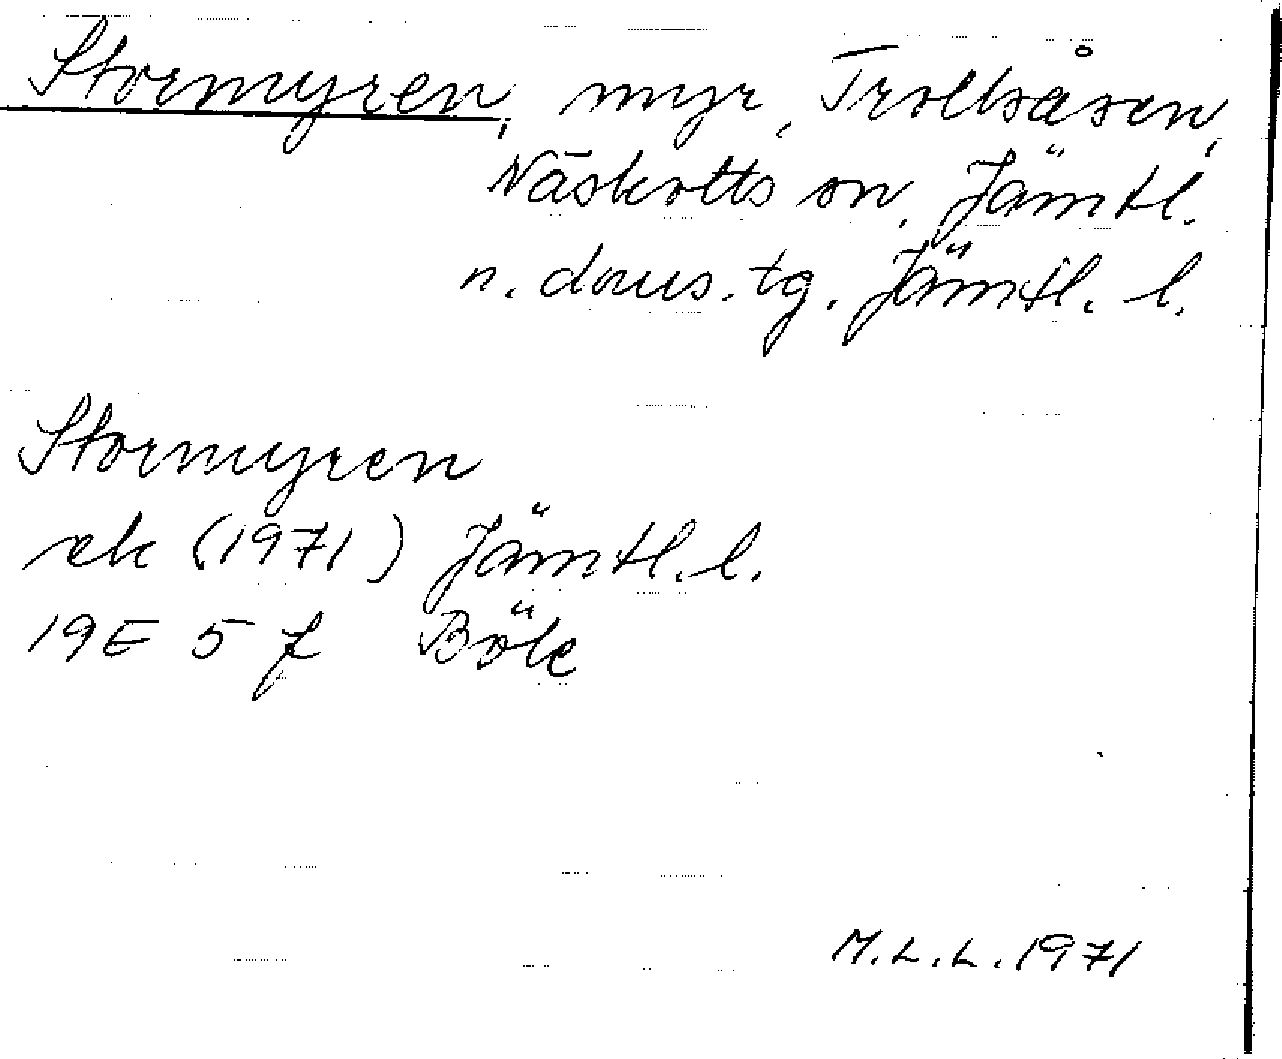 Stormyren, myr, Trollsåsen,
Näskotts sn, Jämtl.
n. doms. tg. Jämtl. l.
Stormyren
ek (1971) Jämtl. l.
19E 5 f Böle
M.L.L. 1971